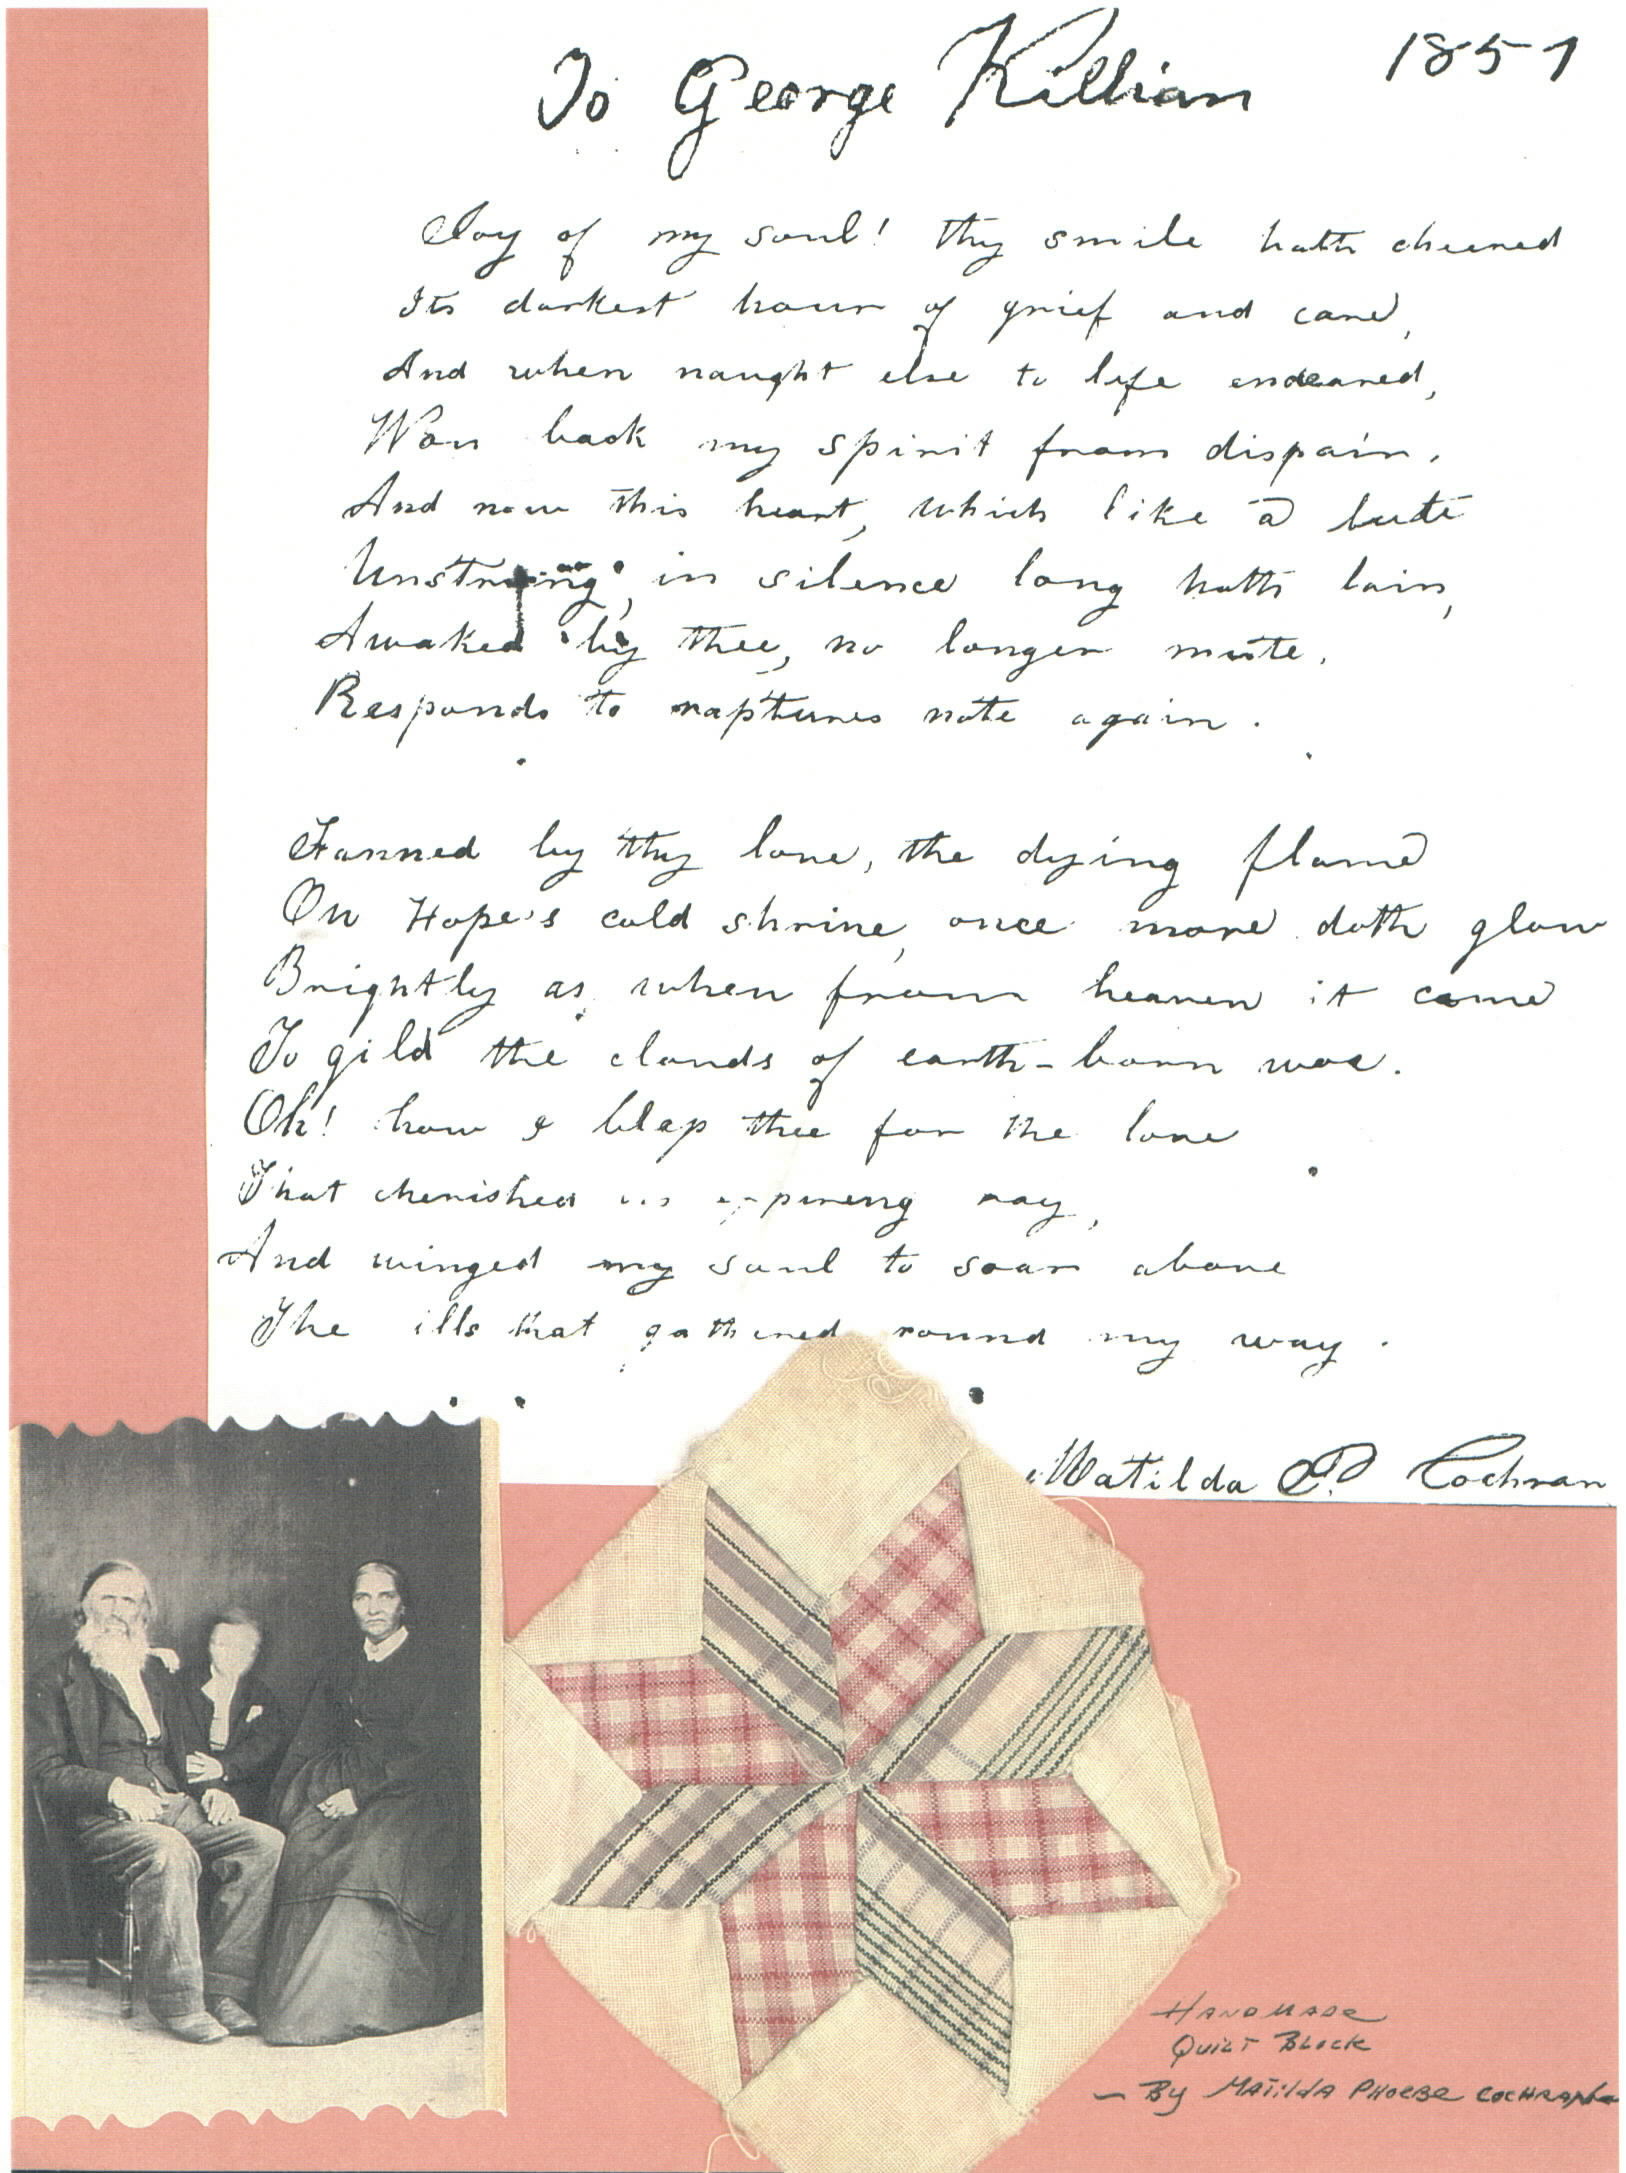 To George Killian
1857
Joy of my soul! thy smile hath cheered
Its darkest hour of grief and care,
And when naught else to life endeared,
Won back my spirit from dispair.
And now this heart, which like a lute
Unstrung, in silence long hath lain,
Awaked by thee, no longer mute.
Responds to raptures note again.
Fanned by thy love, the dying flame
On Hope's cold shrine, once more doth glow
Brightly as when from heaven it came
To gild the clouds of earth-born woe.
Oh! how I bless thee for the love
That cherished its expireing ray,
And winged my soul to soar above
The ills that gathered round my way.
Matilda P. Cochran
HandMade
Quilt Block
- By Matilda Phoebe Cochran